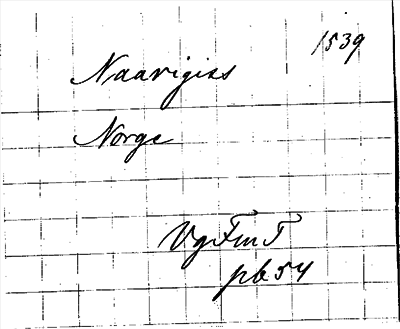 1539
Naarigiss
Norge
VgFmT
pb 54